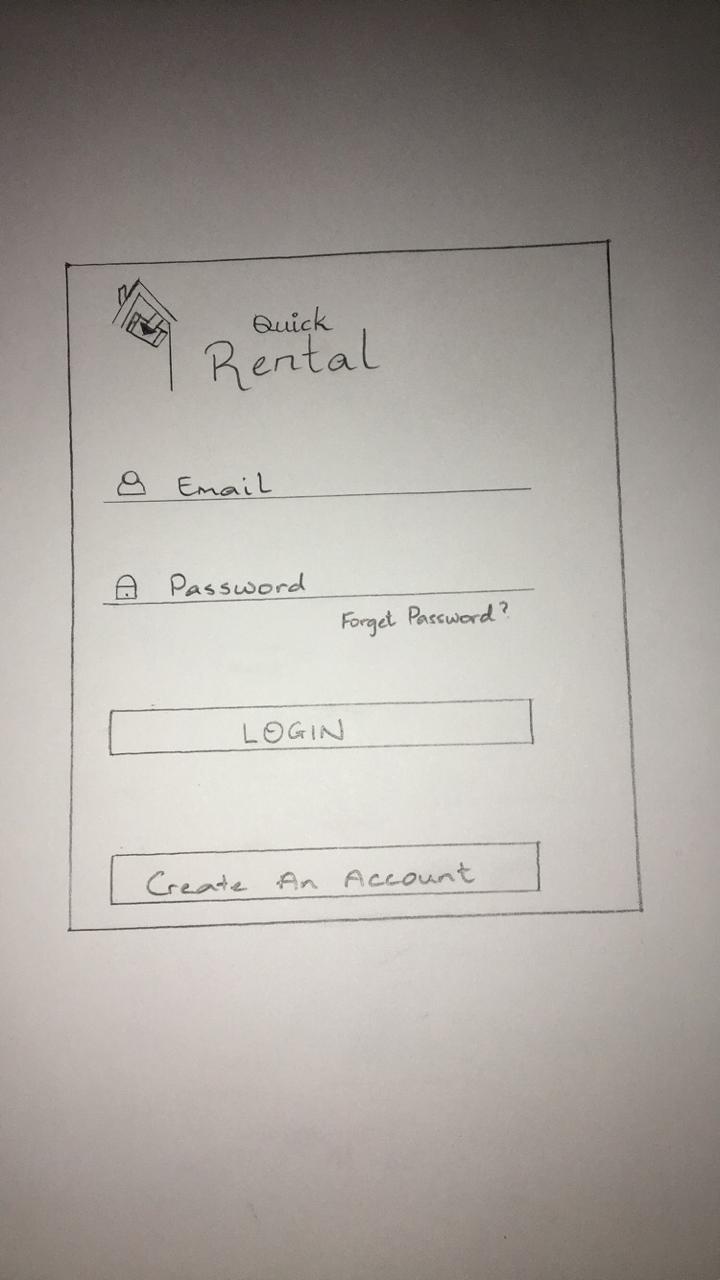 Quick
Rental
Email
Password
Forget Password?
LOGIN
Create An Account